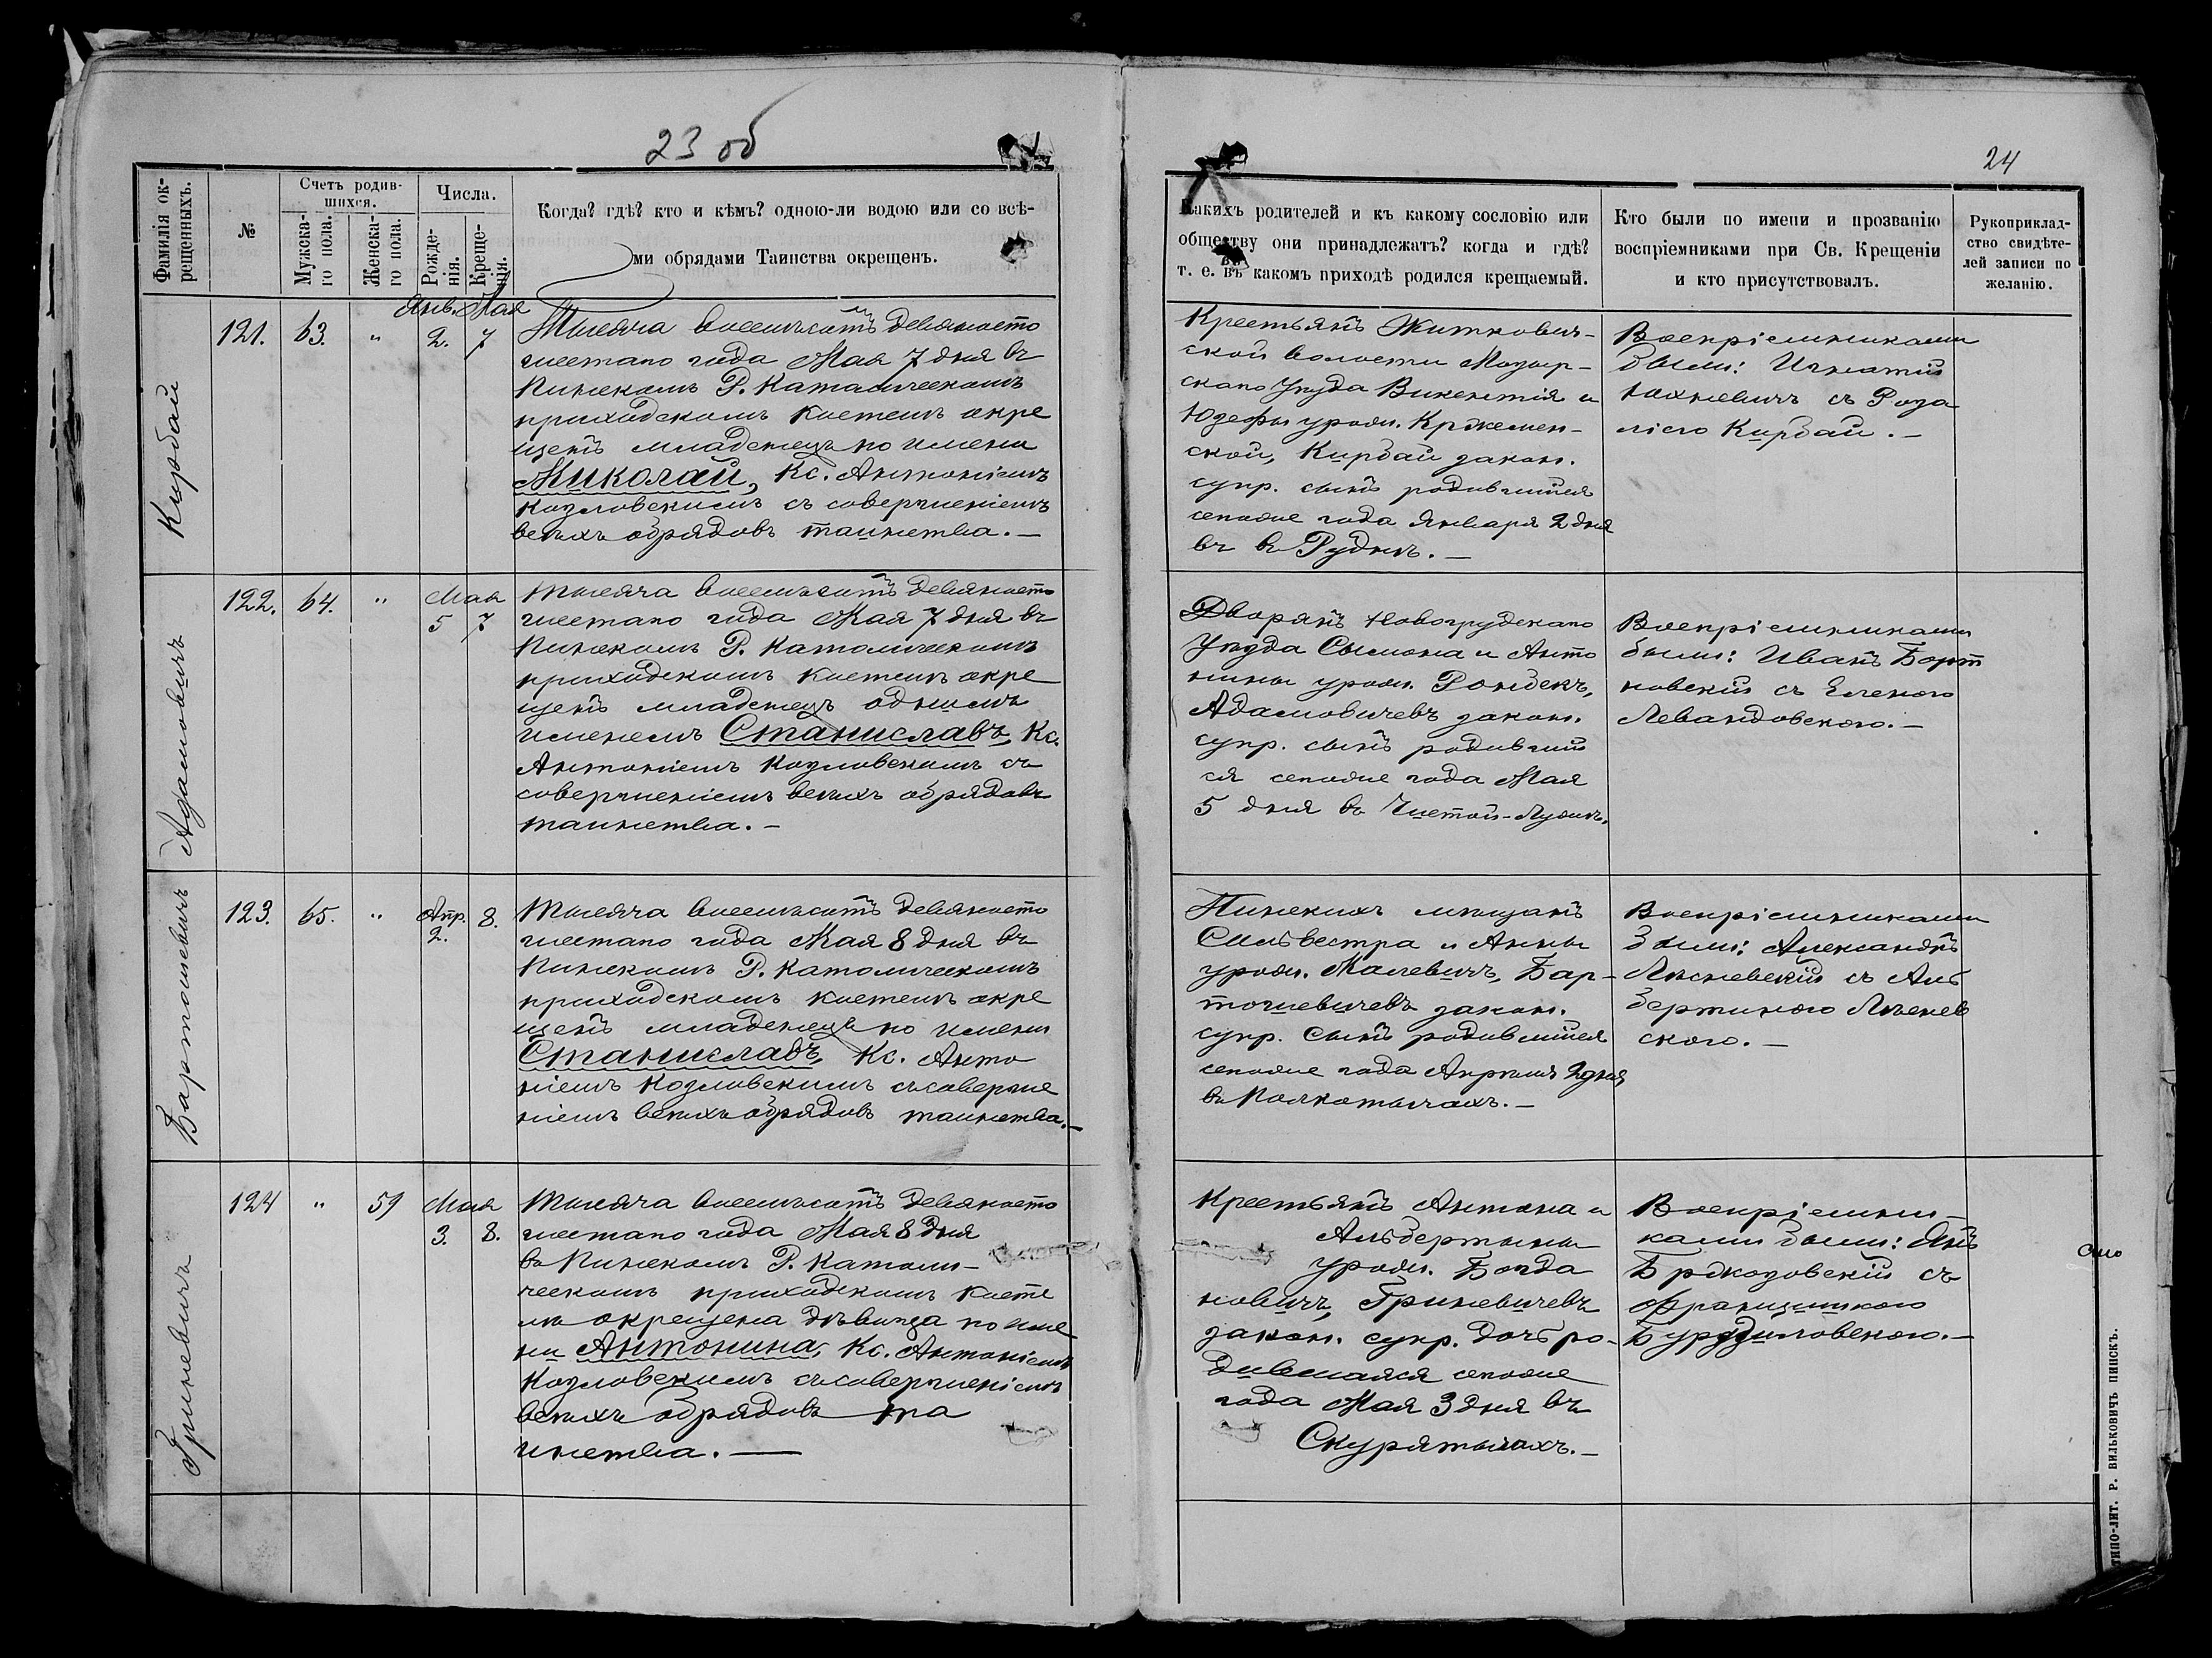 23 об
24
Фамилія ок-
рещенныхъ.
№
Счетъ родив-
шихся.
Мужска-
го пола.
Женска-
го пола.
Числа.
Рожде-
нія.
Креще-
нія.
Когда? гдѣ? кто и кѣмъ? одною-ли водою или со всѣ-
ми обрядами Таинства окрещенъ.
Какихъ родителей и къ какому сословію или
обществу они принадлежатъ? когда и гдѣ?
т. е. въ какомъ приходѣ родился крещаемый.
Кто были по имени и прозванію
воспріемниками при Св. Крещеніи
и кто присутствовалъ.
Рукоприклад-
ство свидѣте-
лей записи по
желанію.
Кирбай
121. 63. " Янв. Мая
2. 7
Тысяча восемьсотъ девяносто
шестаго года Мая 7 дня въ
Пинскомъ Р. Католическомъ
приходскомъ костелѣ окре
щенъ младенецъ по имени
Николай, Кс. Антоніемъ
Козловскимъ съ совершеніемъ
всѣхъ обрядовъ таинства. —
Крестьянъ Житкович-
ской волости Мозыр-
скаго Уѣзда Викентія и
Юзефы урожд. Кржемен-
ской, Кирбай закон.
супр. сынъ родившійся
сегоже года Января 2 дня
въ в Руднѣ. —
Воспріемниками
были: Игнатій
Юхневичъ съ Роза
ліею Кирбай. —
Адамовичъ
122. 64. " Мая
5 7
Тысяча восемьсотъ девяносто
шестаго года Мая 7 дня въ
Пинскомъ Р. Католическомъ
приходскомъ костелѣ окре
щенъ младенецъ однимъ
именемъ Станиславъ, Кс.
Антоніемъ Козловскимъ съ
совершеніемъ всѣхъ обрядовъ
таинства. —
Дворянъ Новогрудскаго
Уѣзда Сымона и Анто
нины урожд. Рондекъ,
Адамовичевъ закон.
супр. сынъ родивший
ся сегоже года Мая
5 дня въ Чистой-Лужѣ.
Воспріемниками
были: Иванъ Борт
новскій съ Еленою
Левандовскою. —
Бартошевичъ
123. 65. " Апр. 8.
2.
Тысяча восемьсотъ девяносто
шестаго года Мая 8 дня въ
Пинскомъ Р. Католическомъ
приходскомъ костелѣ окре
щенъ младенецъ по имени
Станиславъ, Кс. Анто
ніемъ Козловскимъ съ соверше
ніемъ всѣхъ обрядовъ таинства. —
Пинскихъ мѣщанъ
Сильвестра и Анны
урожд. Малевичъ, Бар-
тошевичевъ закон.
супр. Сынъ родившійся
сегоже года Апрѣля 2 дня
въ Полкотычахъ. —
Воспріемниками
были: Александръ
Лясневскій съ Аль
бертиною Ляснев
скою. —
Гриневичъ
124 " 59 Мая
3. 8.
Тысяча восемьсотъ девяносто
шестаго года Мая 8 дня
въ Пинскомъ Р. Католи-
ческомъ приходскомъ косте
лѣ окрещена дѣвица по име
ни Антонина, Кс. Антоніемъ
Козловскимъ съ совершеніемъ
всѣхъ обрядовъ та
инства. —
Крестьянъ Антона и
Альбертыны
урожд. Богда
новичъ, Гриневичевъ
закон. супр. дочь ро-
дившаяся сегоже
года Мая 3 дня въ
Скурятычахъ. —
Воспріемни-
ками были: Янъ
Бржозовскій съ
Францишкою
Бурдиловскою. —
ТИПО-ЛИТ. Р. ВИЛЬКОВИЧЪ ПИНСКЪ.